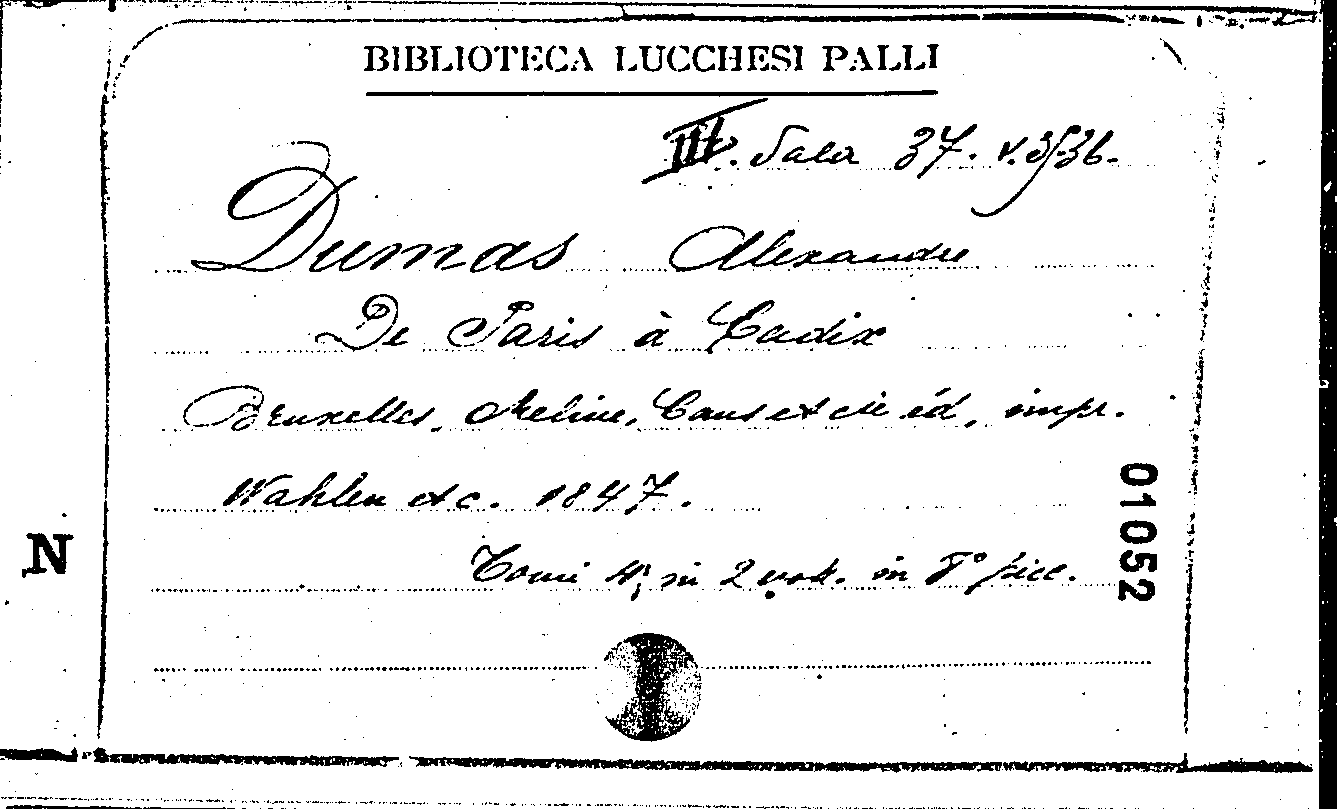 BIBLIOTECA LUCCHESI PALLI
III. Sala 37. V. 35-36.
Dumas Alexandre
De Paris à Cadix
Bruxelles, Meline, Cans et cie éd, impr.
Wahlen etc. 1847.
Tomi 4, in 2 vol. in 8° picc.
01052
N